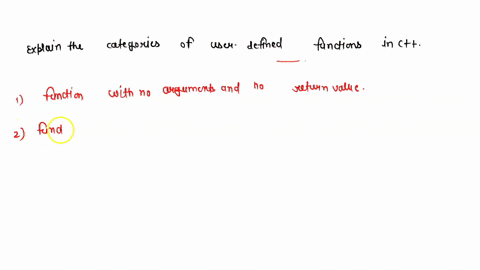 Explain the categories of user-defined functions in C++.
1) function with no arguments and no return value.
2) fund